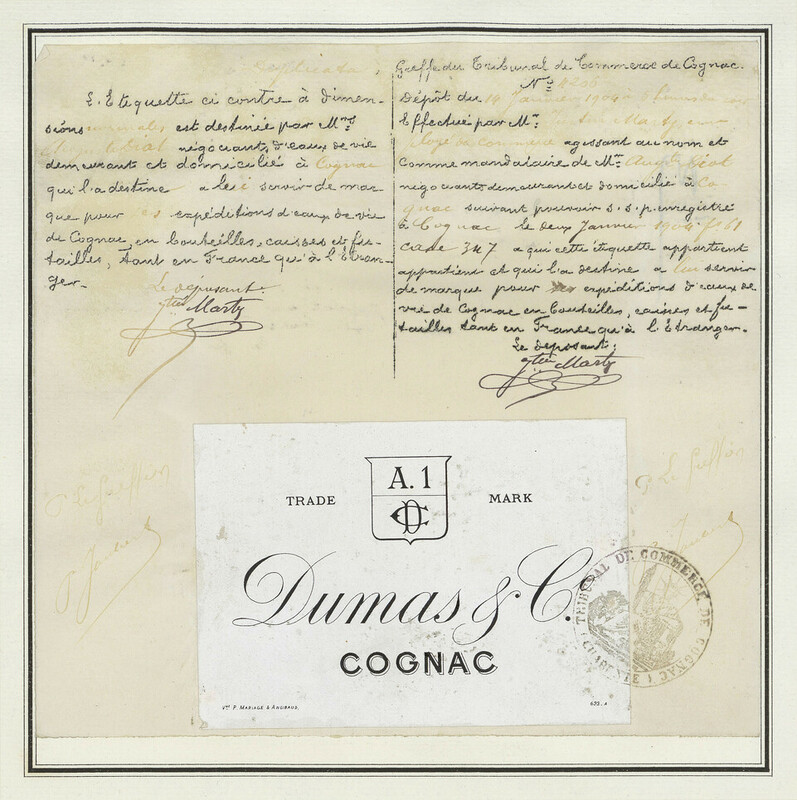 L'Etiquette ci contre à dimen-
sions est destinée par Mrs
négociants, d'eaux de vie
demeurant et domiciliés à Cognac
qui l'a destine a lui servir de mar-
que pour ses expéditions d'eaux de vie
de Cognac, en bouteilles, caisses et fu-
tailles, tant en France qu'à l'Etran-
ger-
Le déposant:
Marty
Greffe du Tribunal de Commerce de Cognac.
No
Dépôt du 14 Janvier 1904
Effectué par Mr
agissant au nom et
comme mandataire de Mrs
négociants demeurant et domicilié à Co
gnac suivant pouvoir s.s.p. enregistré
à Cognac le deux Janvier 1904 fo 61
case 347 a qui cette étiquette appartient
appartient et qui l'a destine a lui servir
de marque pour ses expéditions d'eaux de
vie de Cognac en bouteilles, caisses et fu-
tailles tant en France qu'à l'Etranger-
Le déposant:
Marty
P. Le Greffier
P. Le Greffier
TRADE A.1 MARK
Dumas & Co.
COGNAC
Vve P. MARIAGE & ANGIBAUD.
633. A
TRIBUNAL DE COMMERCE DE COGNAC
(CHARENTE)